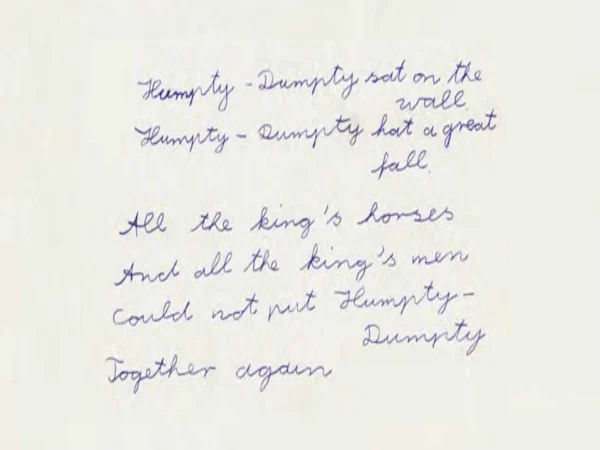 Humpty - Dumpty sat on the
wall.
Humpty - Dumpty hat a great
fall.
All the king's horses
And all the king's men
Could not put Humpty-
Dumpty
Together again